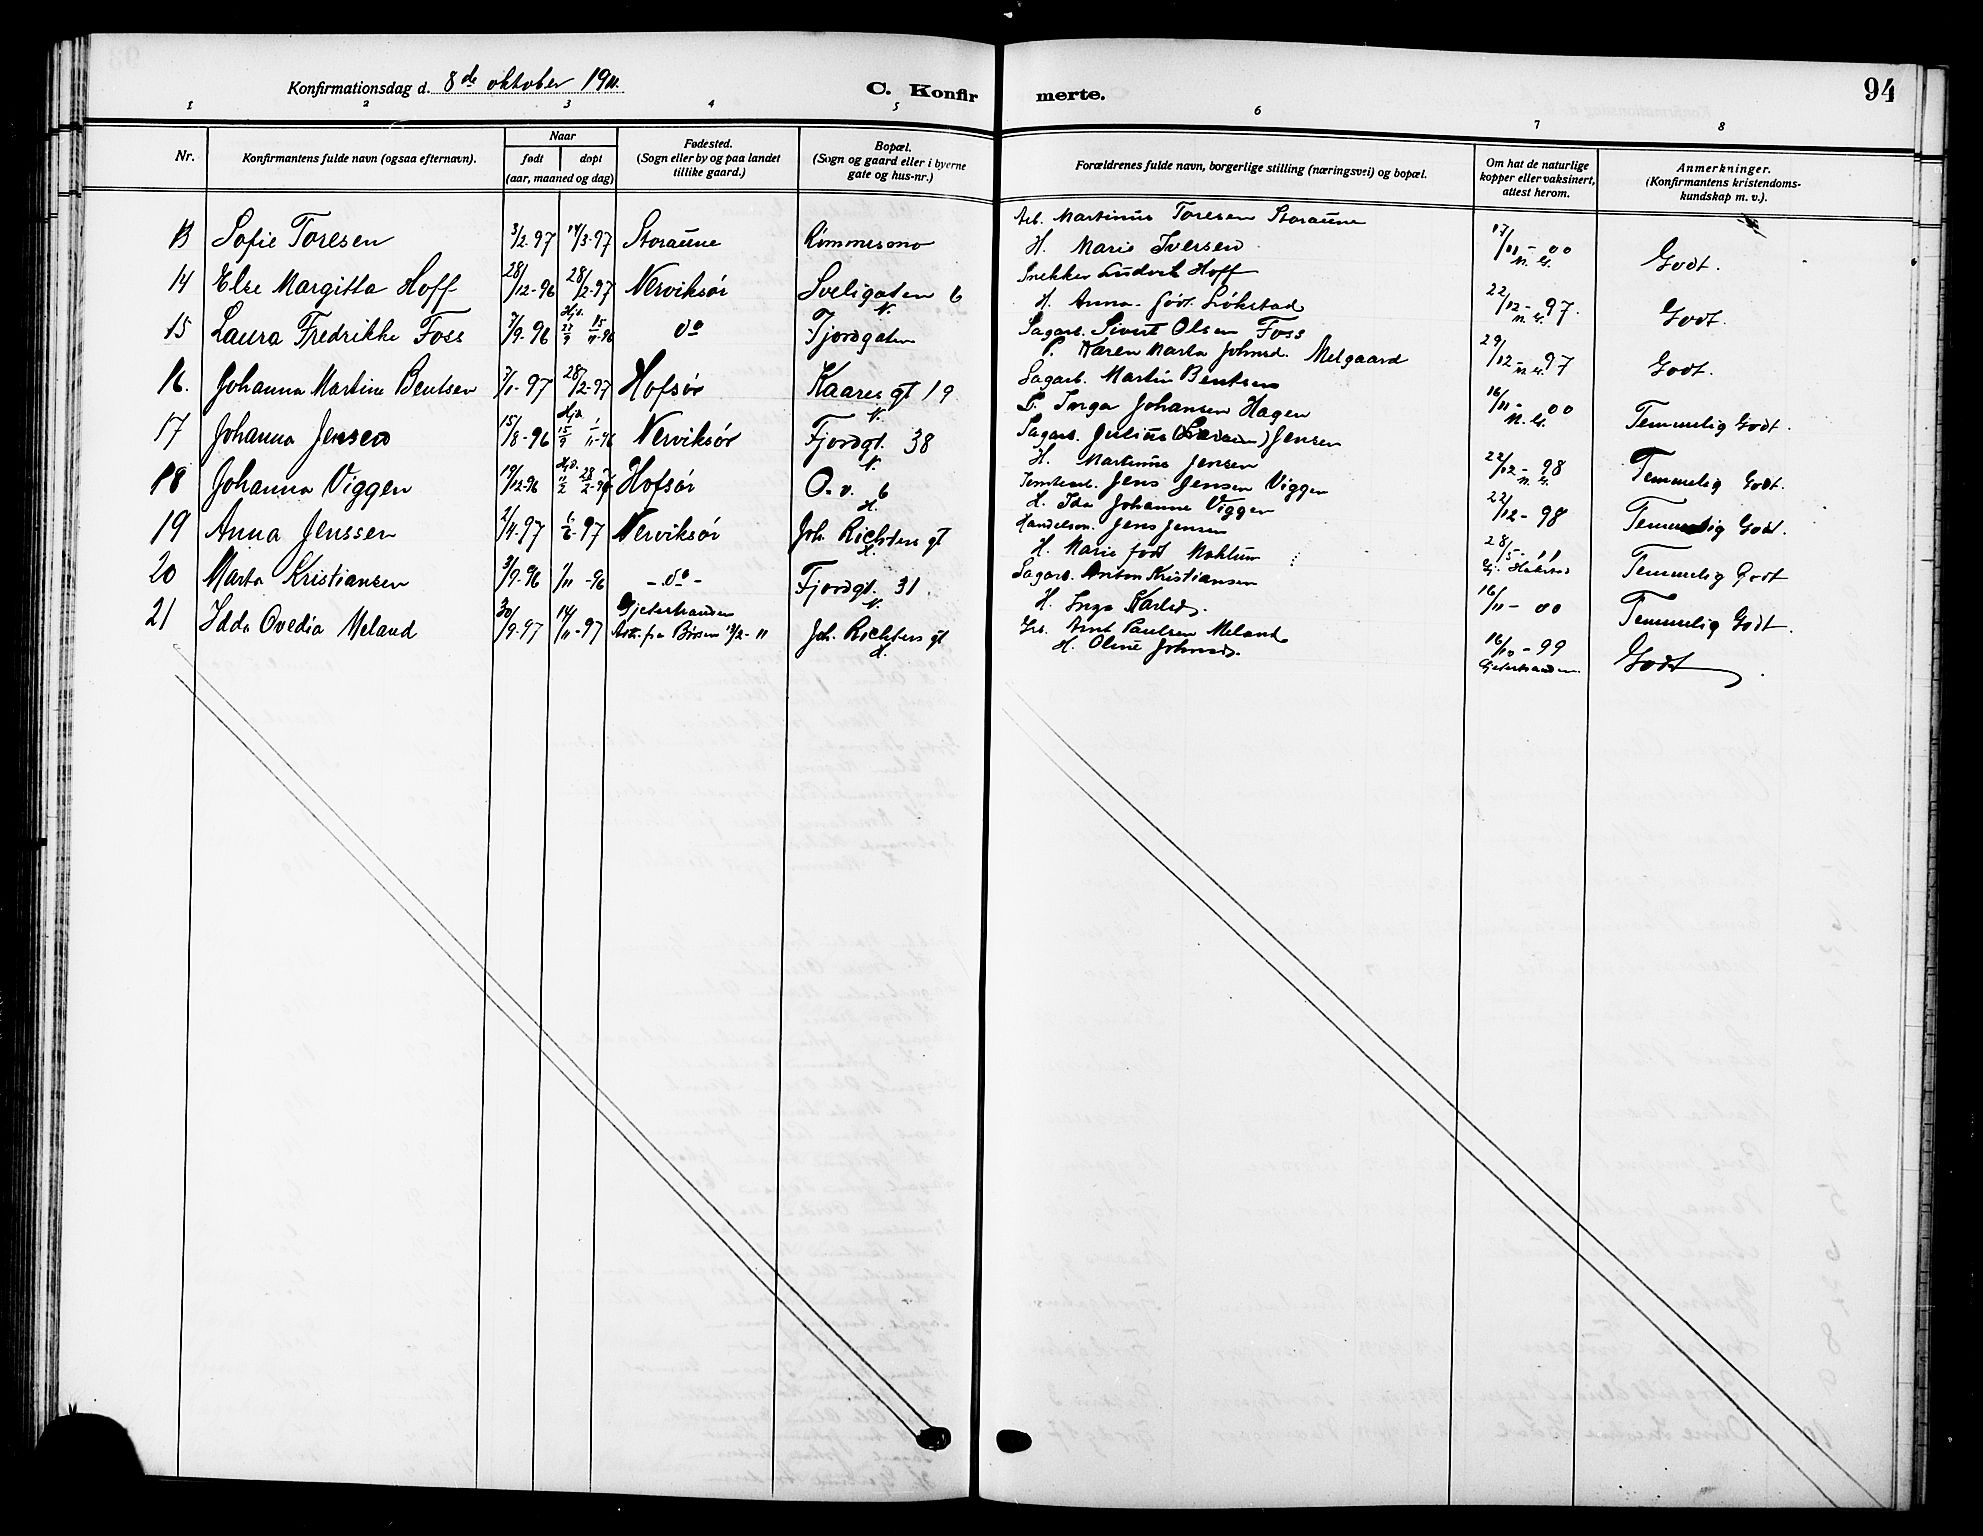 94
Konfirmationsdag d. 8de oktober 1911.
C. Konfirmerte.
1 2 3 4 5 6 7 8
Nr.
Konfirmantens fulde navn (ogsaa efternavn).
Naar
født
døpt
(aar, maaned og dag)
Fødested.
(Sogn eller by og paa landet
tillike gaard.)
Bopæl.
(Sogn og gaard eller i byerne
gate og hus-nr.)
Forældrenes fulde navn, borgerlige stilling (næringsvei) og bopæl.
Om hat de naturlige
kopper eller vaksinert,
attest herom.
Anmerkninger.
(Konfirmantens kristendoms-
kundskap m. v.).
13 Sofie Toresen 3/2-97 14/3-97 Storaune Rømmesmo
Arb. Martinus Toresen Storaune
H. Marie Iversen
17/11-00 N. G. Godt.
14 Else Margitta Hoff 28/12-96 28/2-97 Nerviksør Sveligaten 6 N.
Snekker Ludvik Hoff
H. Anna født Løkstad
22/12-97. N. G. Godt.
15 Laura Fredrikke Foss 7/9-96 Hjd. 27/9 15/11-96 do Fjordgaten
Sagarb. Sivert Olsen Foss
P. Karen Marta Johnsd. Melgaard
29/12-97 N. G. Godt.
16. Johanna Martine Bentsen 7/1-97 28/2-97 Hofsør Kaares gt 19 N.
Sagarb. Martin Bentsen
P. Inga Johansen Hagen
16/11-00 N. G. Temmelig Godt.
17 Johanna Jensen 15/8-96 Hjd. 15/9 1/11-96 Nerviksør Fjordgt. 38 N.
Sagarb. Julius (Larsen) Jensen
H. Martinus Jensen
22/12-98 N. G. Temmelig Godt.
18 Johanna Viggen 19/12-96 Hjd. 28/2-97 Hofsør O. v. 6 H.
Jens Jensen Viggen
H. Ida Johanne Viggen
22/12-98 Temmelig Godt.
19 Anna Jenssen 2/4-97 6/6-97 Nerviksør Joh. Richters gt H.
Handelsm. Jens Jensen
H. Marie født Moklum
28/5-11 Temmelig Godt
20 Marta Kristiansen 3/9-96 1/11-96 - do - Fjordgt. 31. N.
Sagarb. Anton Kristiansen
H. Inga Karlsd.
16/11-00 Temmelig Godt.
21 Idda Ovedia Meland 30/9-97 14/11-97 Gjeterstranden
Att. fra Børsen 13/2-11 Joh. Richters gt H.
Arnt Paulsen Meland
H. Oline Johnsd.
16/10-99 Gjeterstranden. Godt